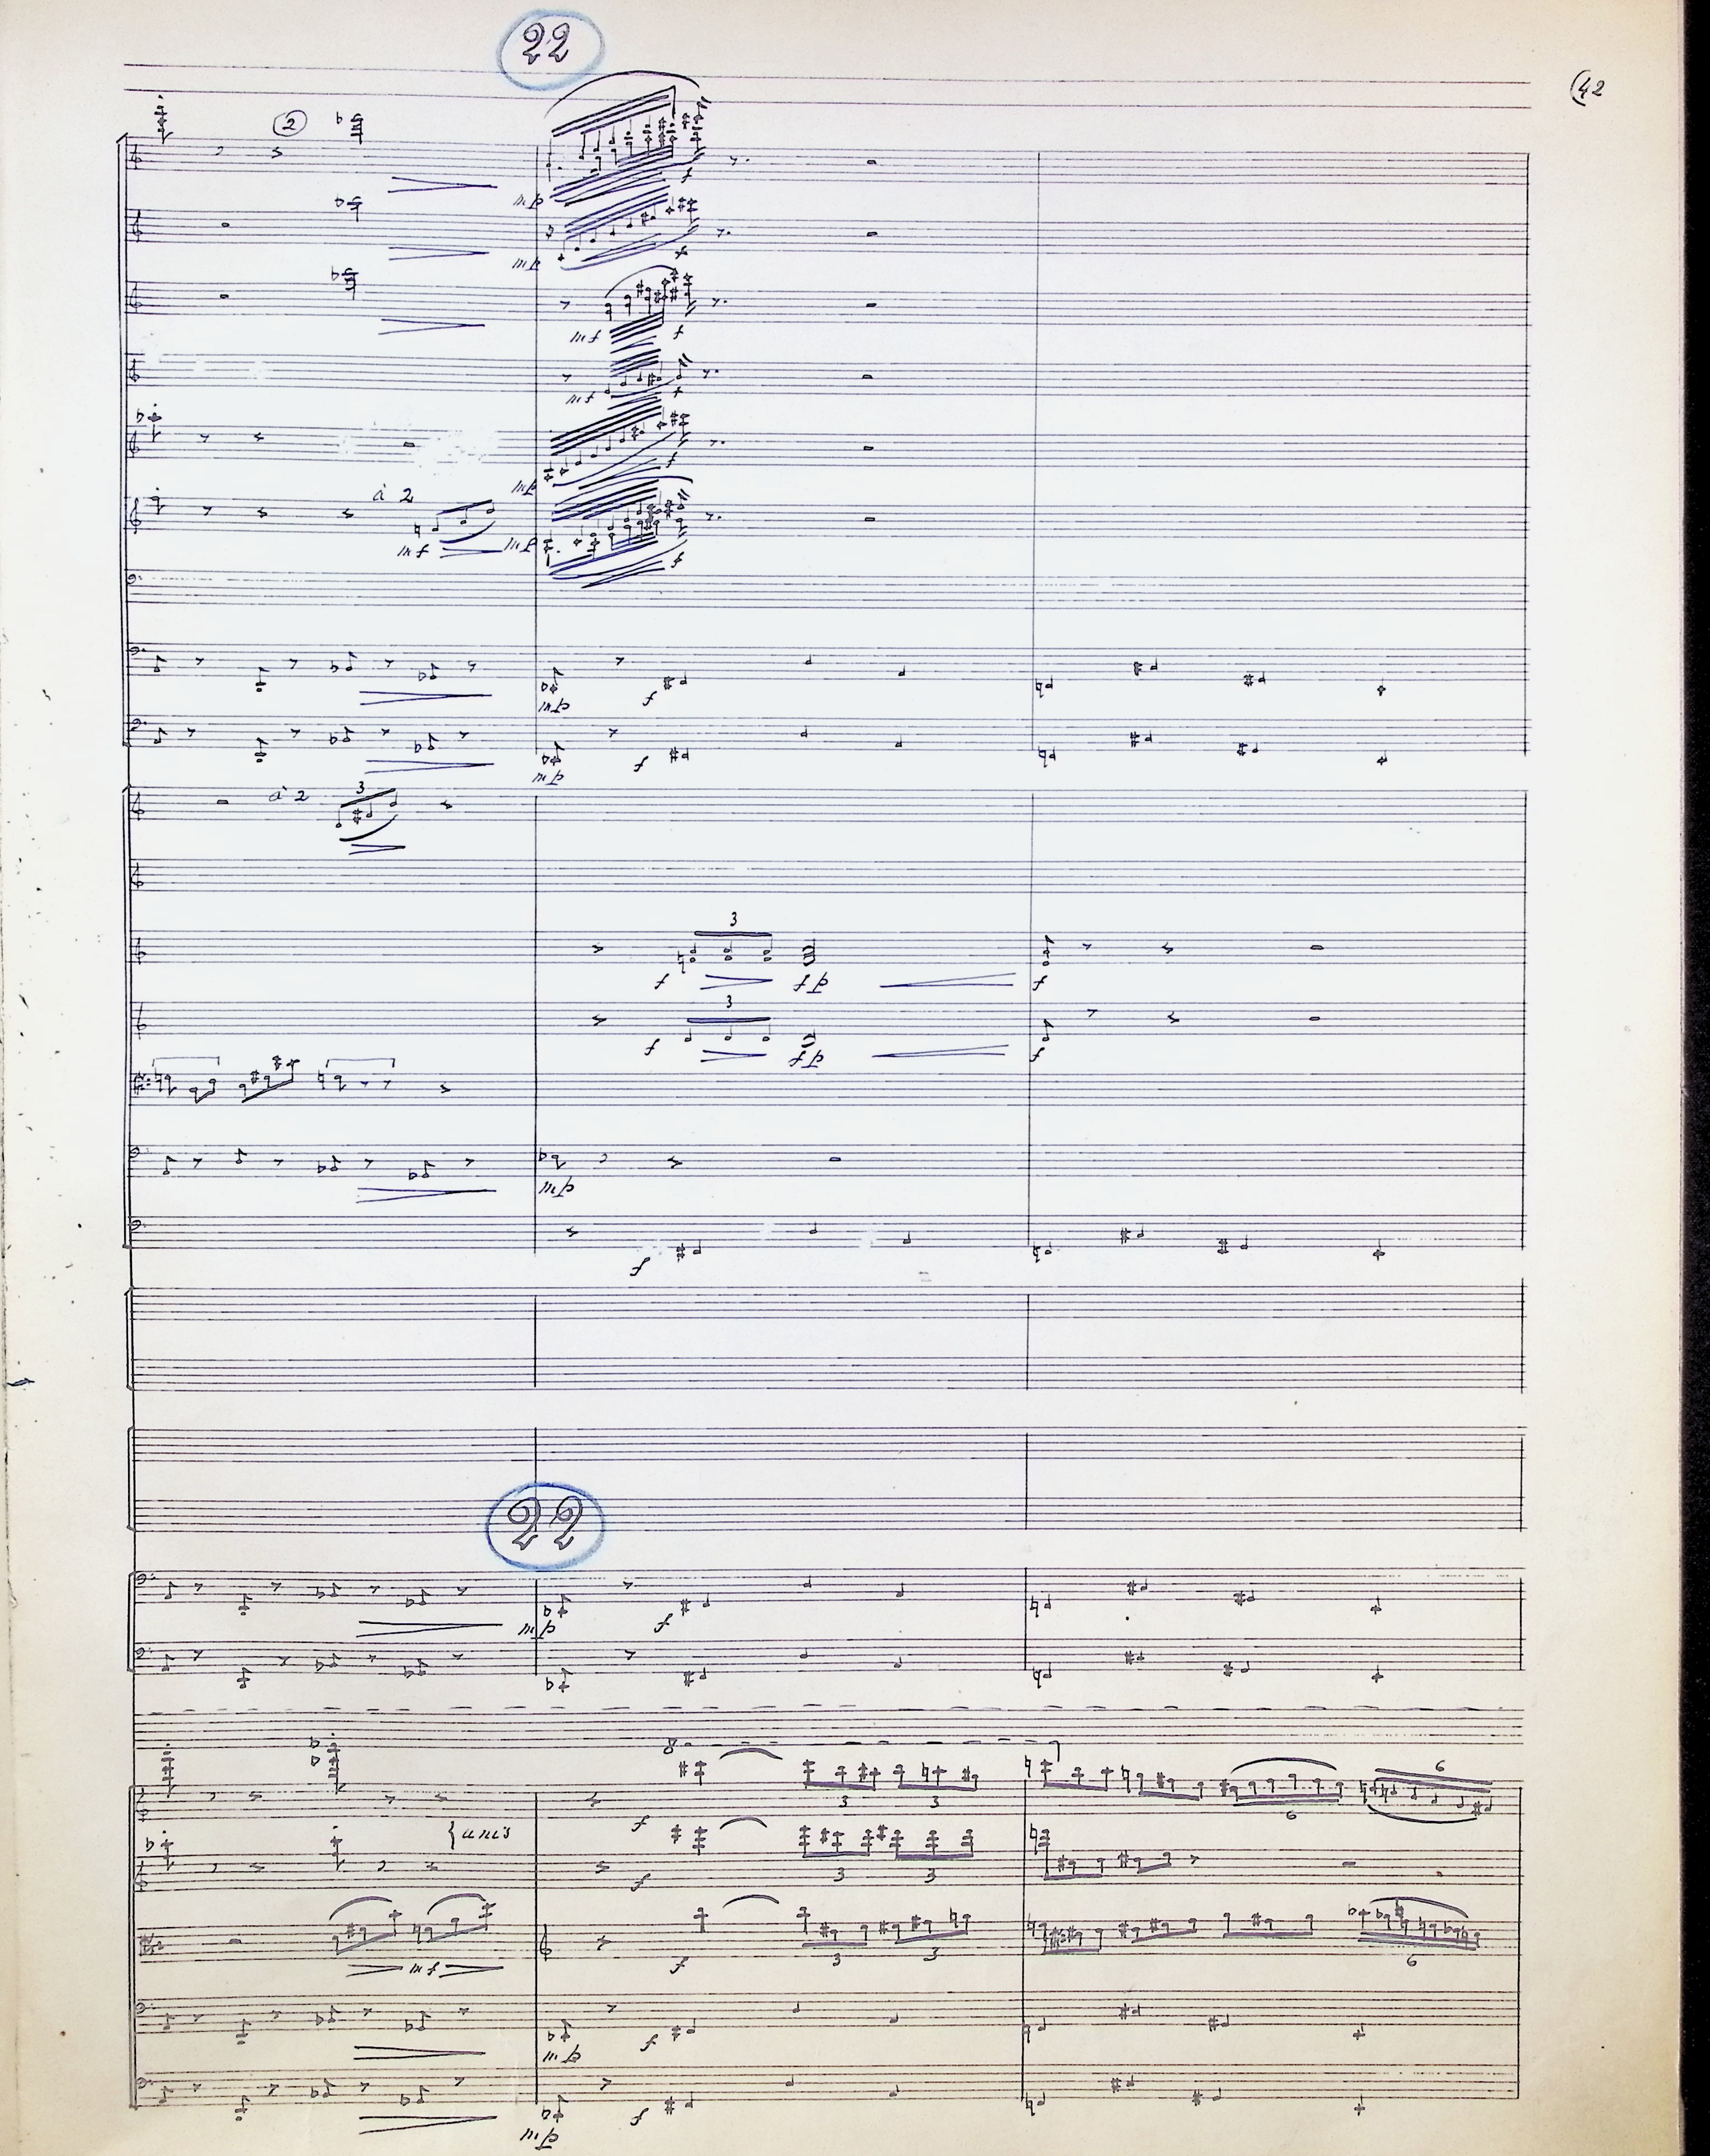 22
(42
2
mp f
mp f
mf f
mf f
mp f
à 2
mf mf f
mp f
f
mp
à 2 3
3
f fp f
3
f fp f
mp
f
22
mp f
8
3 3 6 6
f
unis
f 3 3
mf f 3 3 6
mp f
mp f